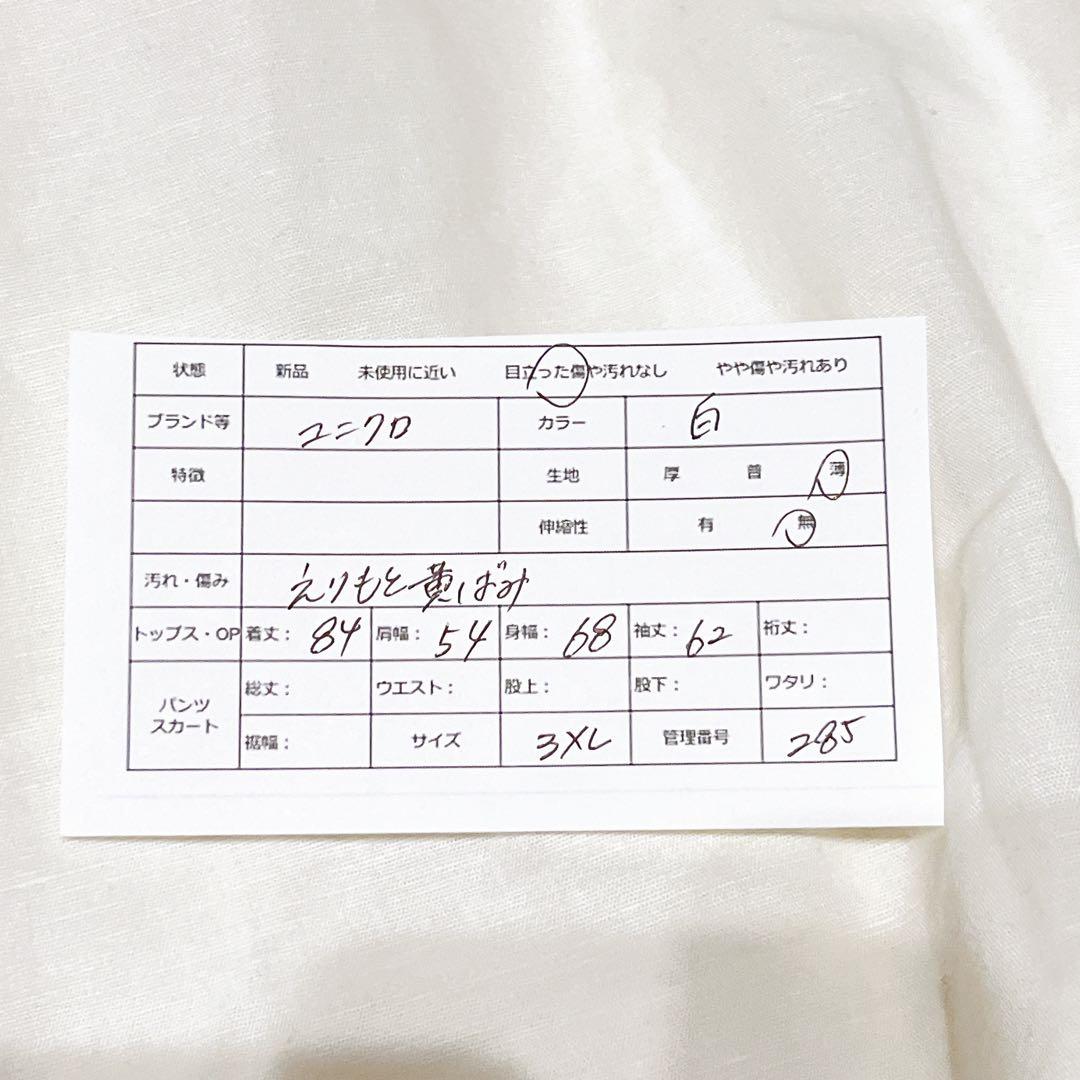 状態 新品 未使用に近い 目立った傷や汚れなし やや傷や汚れあり
ブランド等 ユニクロ カラー 白
特徴 生地 厚 普 薄
伸縮性 有 無
汚れ・傷み えりもと黄ばみ
トップス・OP 着丈： 84 肩幅： 54 身幅： 68 袖丈： 62 裄丈：
パンツ スカート 総丈： ウエスト： 股上： 股下： ワタリ：
裾幅： サイズ 3XL 管理番号 285